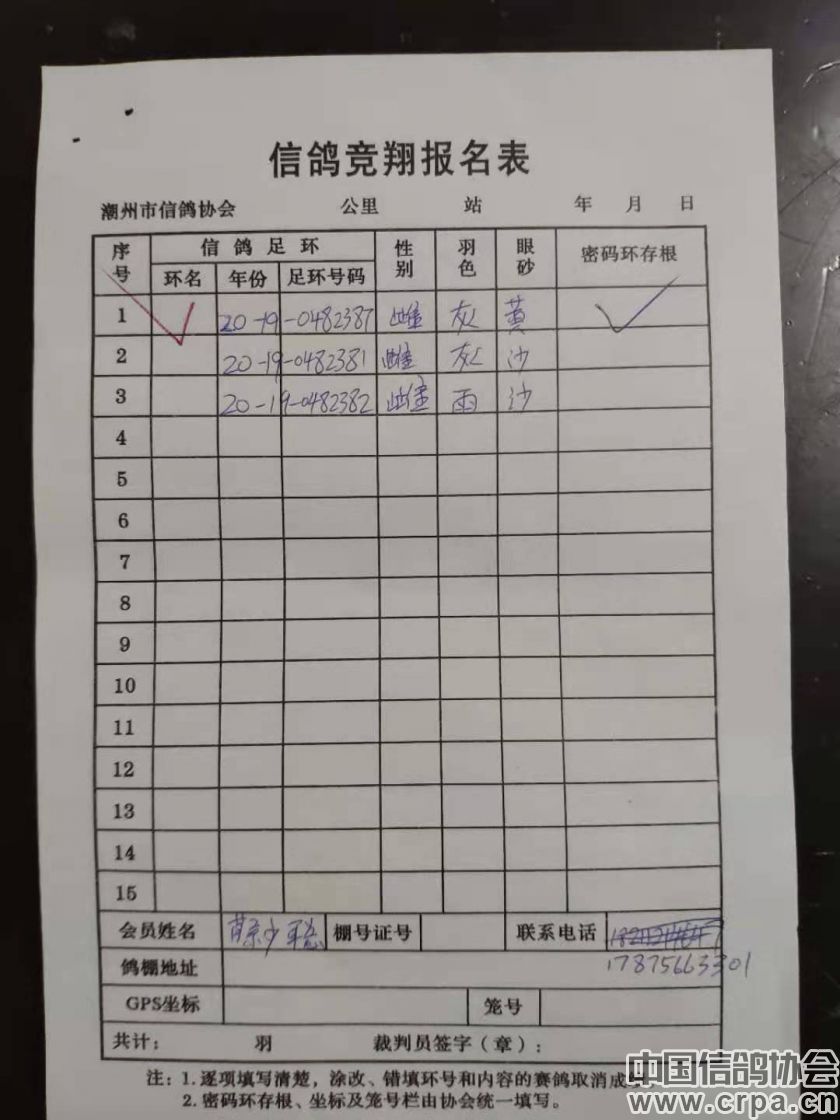 信鸽竞翔报名表
潮州市信鸽协会 公里 站 年 月 日
序号 信鸽足环 性别 羽色 眼砂 密码环存根
环名 年份 足环号码
1 20-19-0482387 雌 灰 黄
2 20-19-0482381 雌 灰 沙
3 20-19-0482382 雌 雨 沙
4
5
6
7
8
9
10
11
12
13
14
15
会员姓名 棚号证号 联系电话
17875663301
鸽棚地址
GPS坐标 笼号
共计： 羽 裁判员签字（章）：
注：1.逐项填写清楚，涂改、错填环号和内容的赛鸽取消成
2.密码环存根、坐标及笼号栏由协会统一填写。
中国信鸽协会
www.crpa.cn